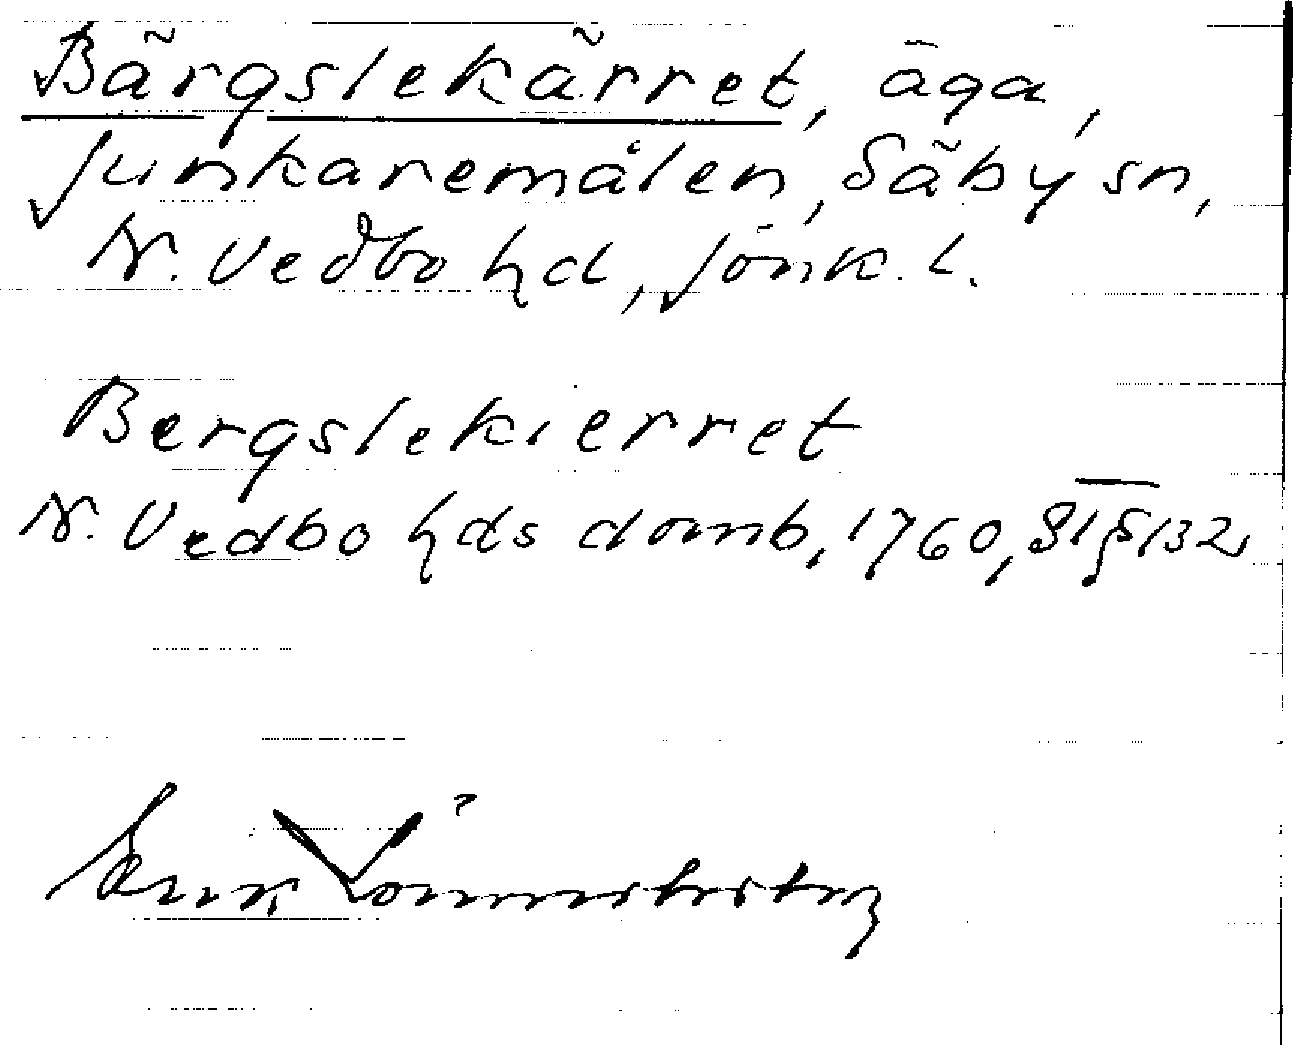 Bärgslekärret, äga,
Junkaremålen, Säby sn,
N. Vedbo hd, Jönk. l.
Bergslekierret
N. Vedbo hds domb, 1760, 31/5 § 132
Erik